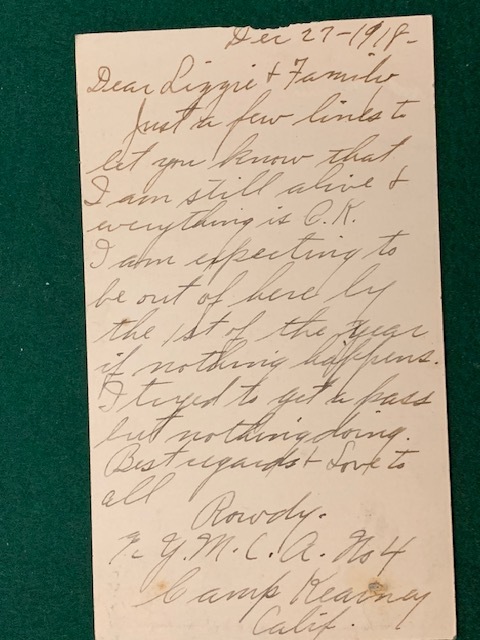 Dec 27-1918-
Dear Lizzie & Family
Just a few lines to
let you know that
I am still alive &
everything is O.K.
I am expecting to
be out of here by
the 1st of the year
if nothing happens.
I tryed to get a pass
but nothing doing.
Best regards & Love to
all
Rowdy.
℅ Y.M.C.A. No 4
Camp Kearney
Calif.